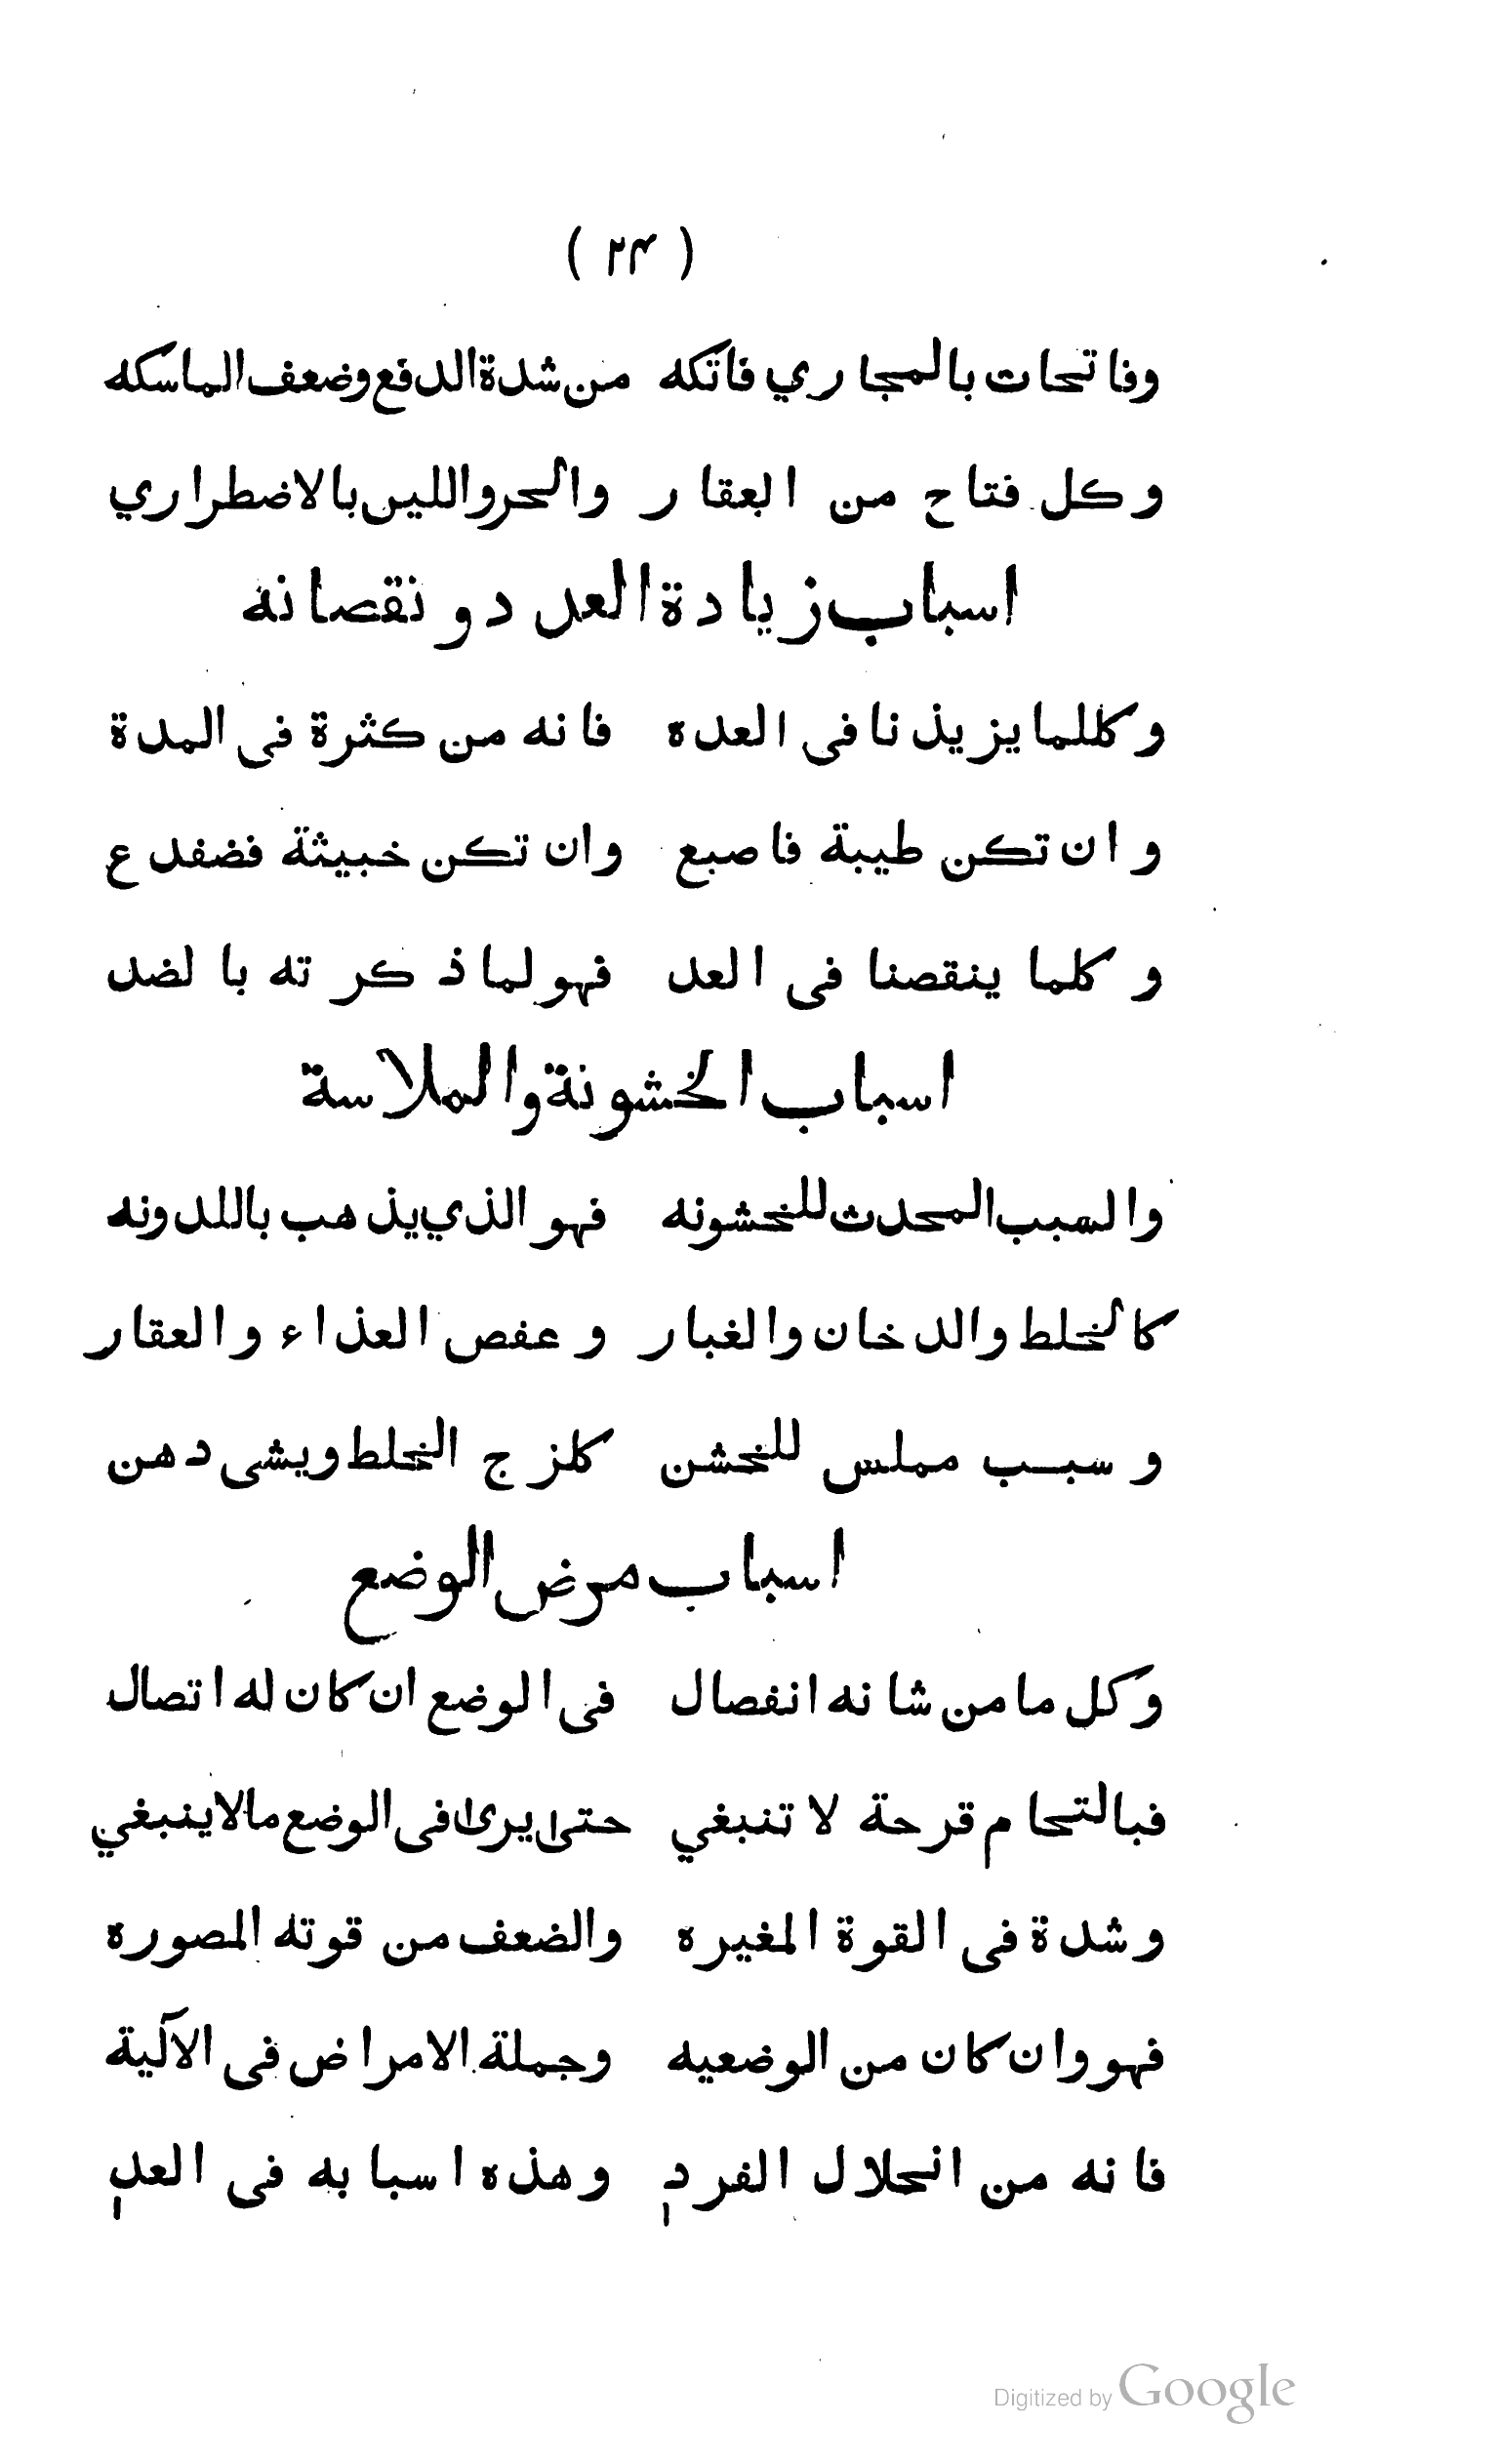 ( ٢٤ )
وفاتحات بالمجاري فاتكه من شدة الدفع وضعف الماسكه
وكل فتاح من العقار والحر واللين بالاضطراري
اسباب زيادة العدد ونقصانه
وكللما يزيذنا فى العده فانه من كثرة فى المدة
وان تكن طيبة فاصبع وان تكن خبيثة فضفدع
وكلما ينقصنا فى العد فهو لما ذكرته بالضد
اسباب الخشونة والملاسة
والسبب المحدث للخشونه فهو الذي يذهب باللدونه
كالخلط والدخان والغبار وعفص العذاء والعقار
وسبب مملس للخشن كلزج الخلط وبشى دهن
اسباب مرض الوضع
وكل ما من شانه انفصال فى الوضع ان كان له اتصال
فبالتحام قرحة لا تنبغي حتى يرى فى الوضع مالا ينبغي
وشدة فى القوة المغيره والضعف من قوته المصوره
فهو وان كان من الوضعيه وجملة الامراض فى الآلية
فانه من انحلال الفرد وهذه اسبابه فى العد
Digitized by Google